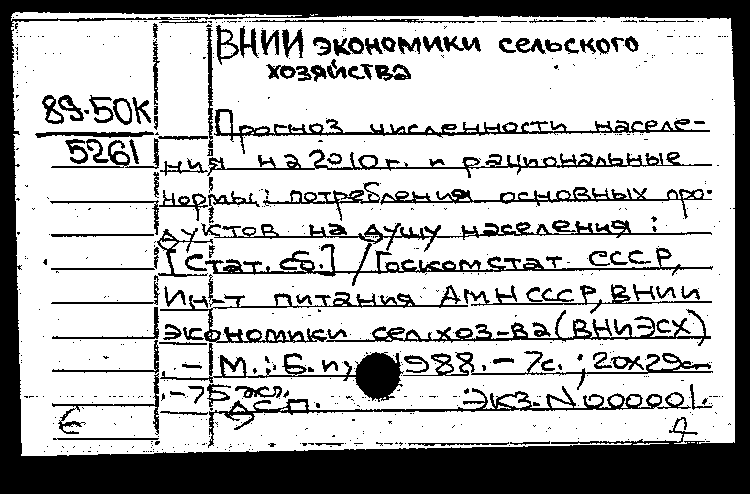 ВНИИ экономики сельского
хозяйства
89-50К
5261
Прогноз численности населе-
ния на 2010 г. и рациональные
нормы потребления основных про-
дуктов на душу населения :
[Стат. сб.] / Госкомстат СССР,
Ин-т питания АМН СССР, ВНИИ
экономики сел. хоз-ва (ВНИЭСХ)
. - М. : Б. и., 1988. - 7с. ; 20х29см
. - 75 экз.
ДСП. Экз. N 000001.